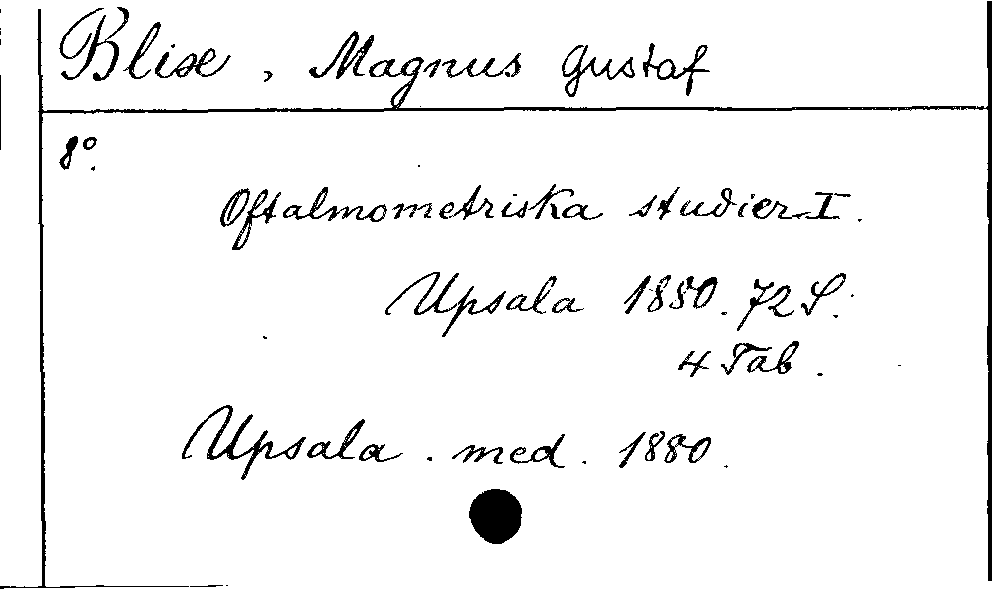 Blix, Magnus Gustaf
8°.
Oftalmometriska studier I.
Upsala 1880. 72 S.
4 Tab.
Upsala. med. 1880.